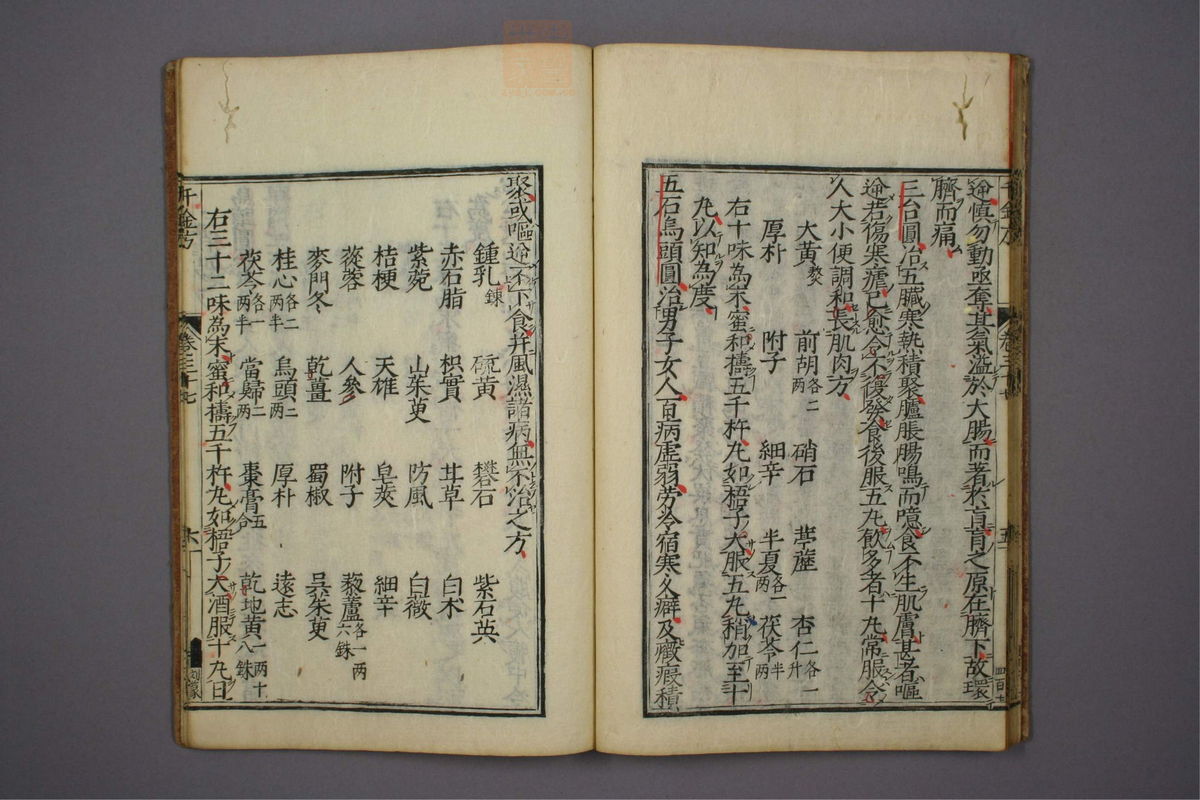 逆慎勿動亟奪其氣溢於大腸而著於肓肓之原在臍下故環
臍而痛
三台圓治五臟寒熱積聚臚脹腸鳴而噫食不生肌膚甚者嘔
逆若傷寒瘧已愈令不復發食後服五丸飲多者十丸常服令
人大小便調和長肌肉方
大黃熬 前胡各二两 硝石 葶藶 杏仁各一升
厚朴 附子 細辛 半夏各一两 茯苓半两
右十味為末蜜和擣五千杵丸如梧子大服五丸稍加至十
丸以知為度
五石烏頭圓治男子女人百病虛弱劳冷宿寒久癖及癥瘕積
聚或嘔逆不下食并風濕諸病無不治之方
鍾乳鍊 硫黃 礬石 紫石英
赤石脂 枳實 甘草 白术
紫菀 山茱萸 防風 白薇
桔梗 天雄 皂荚 細辛
蓯蓉 人參 附子 藜蘆各一两六銖
麥門冬 乾薑 蜀椒 吳茱萸
桂心各二两半 烏頭二两 厚朴 遠志
茯苓各一两半 當歸二两 棗膏五合 乾地黃一两十八銖
右三十二味為末蜜和擣五千杵丸如梧子大酒服十丸日
千金方
卷三十七
六